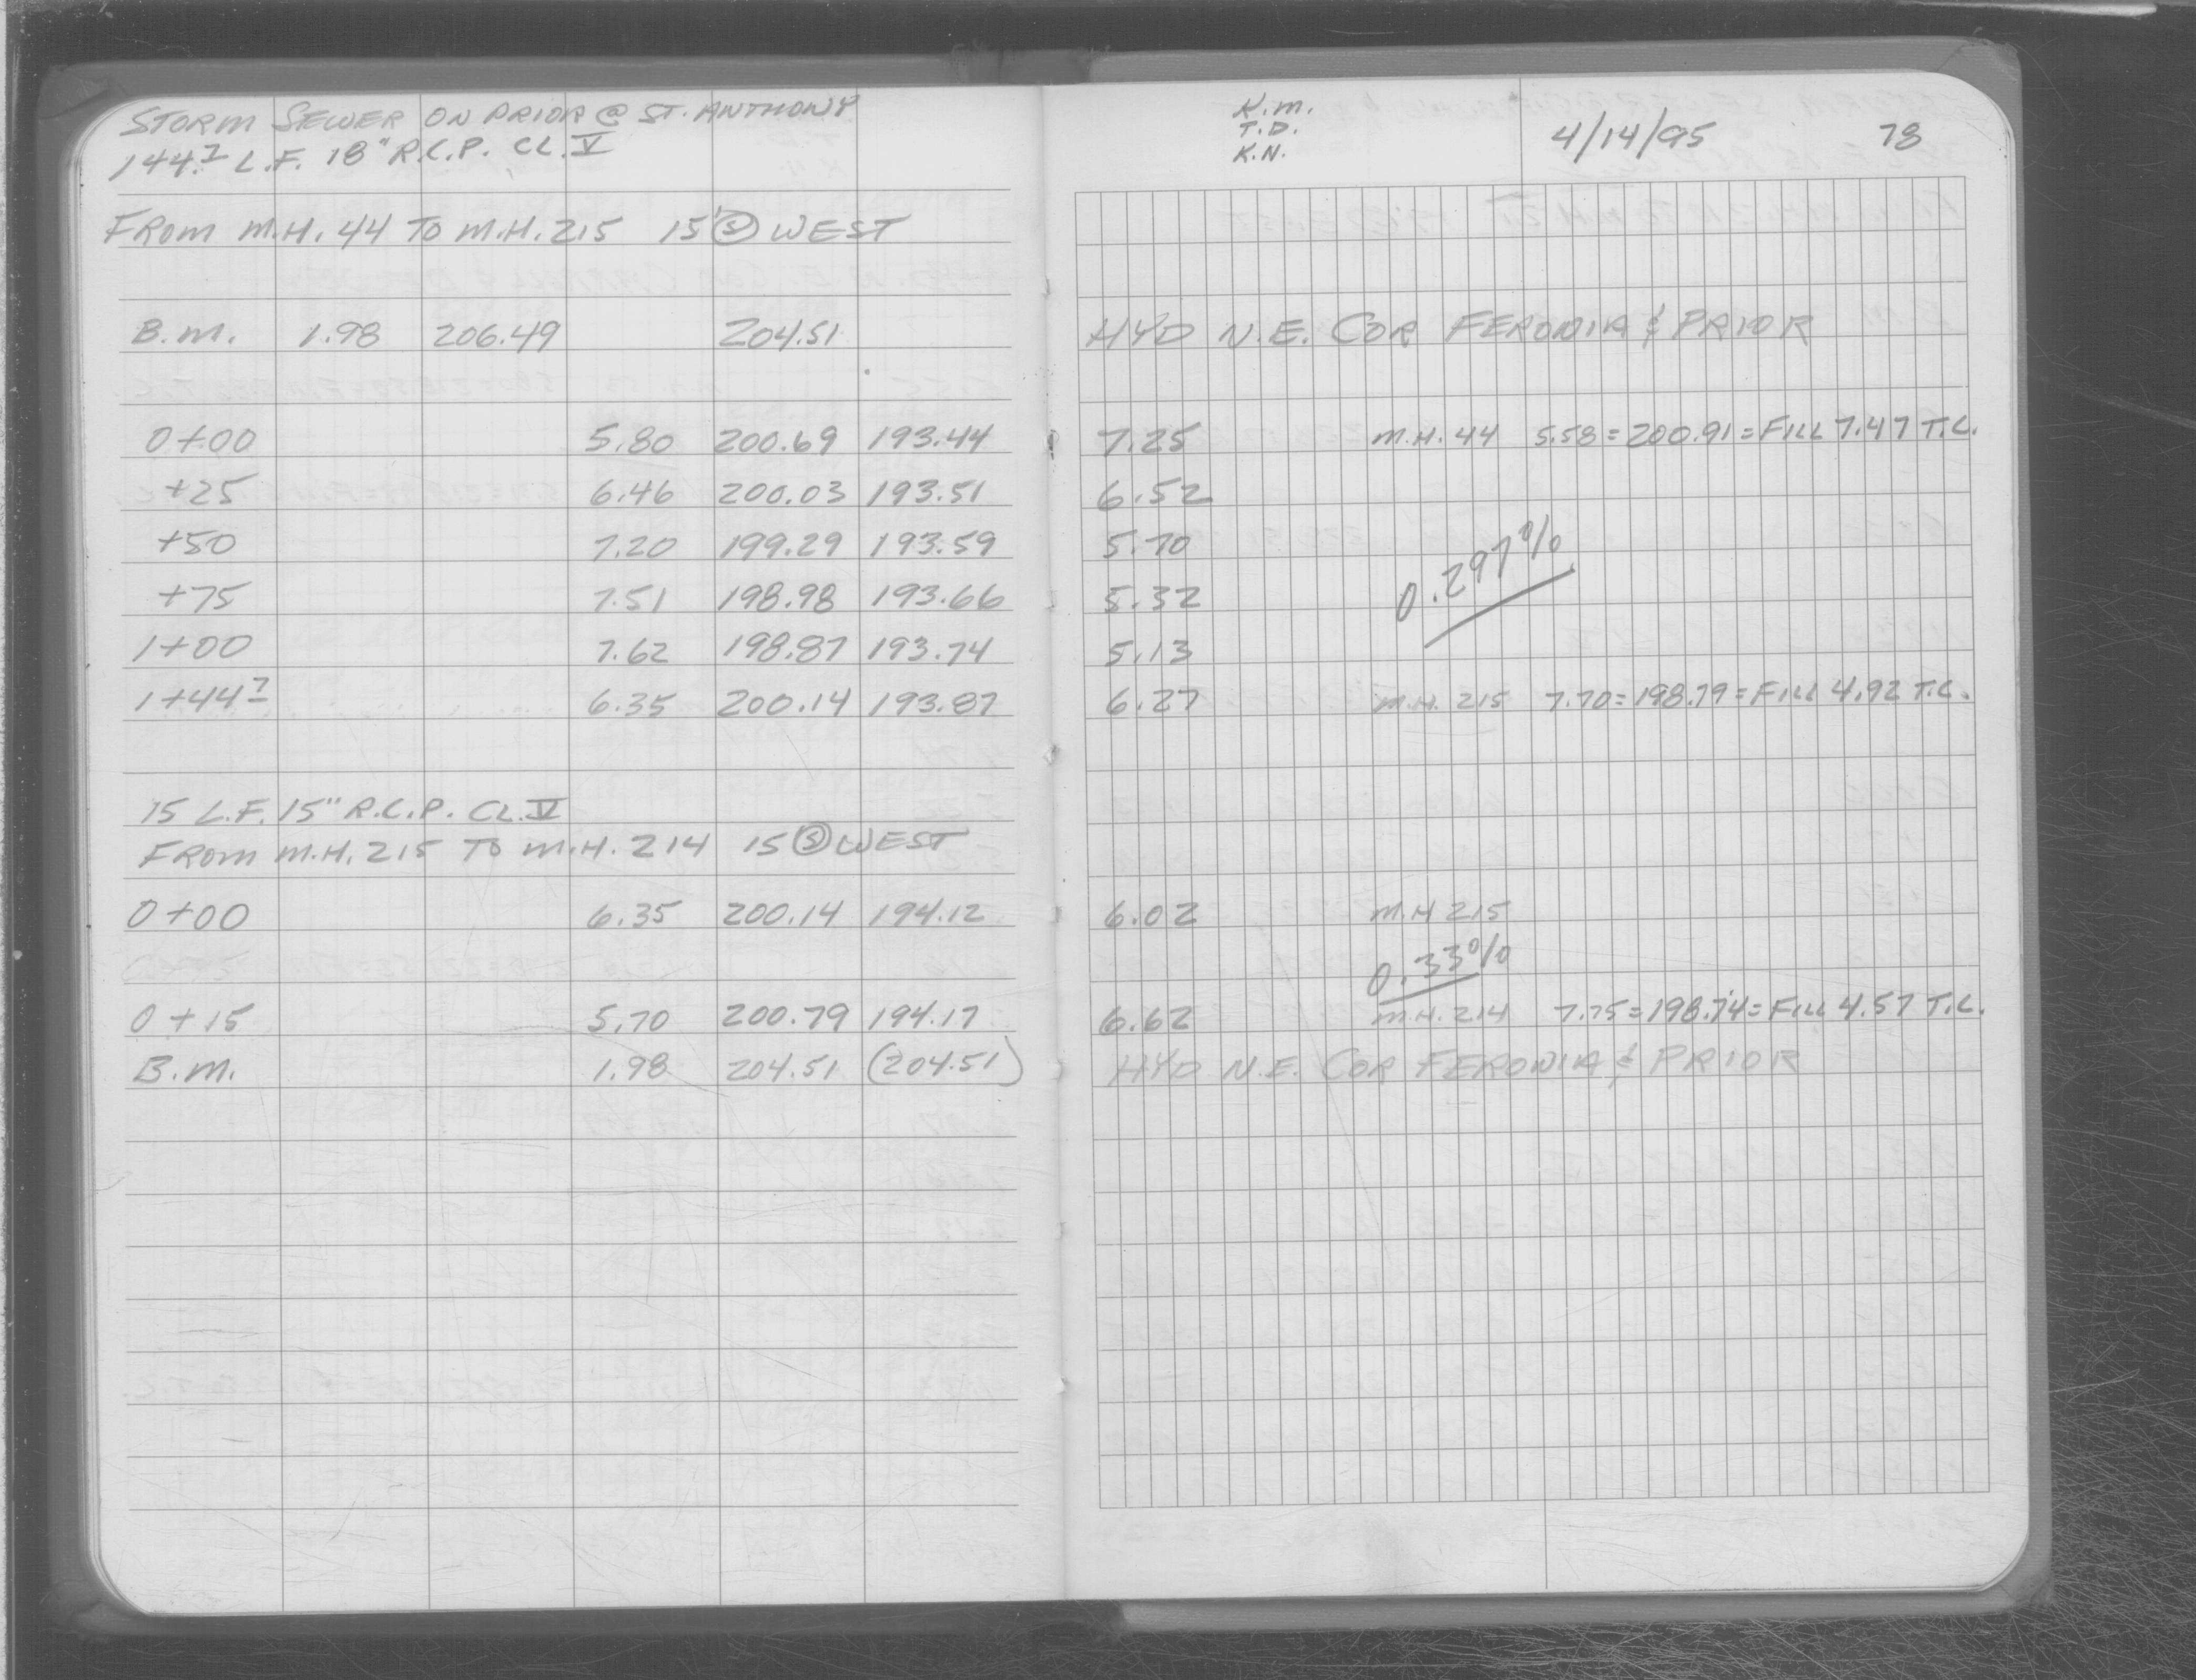 STORM SEWER ON PRIOR @ ST. ANTHONY
144.7 L.F. 18" R.C.P. CL. V
FROM M.H. 44 TO M.H. 215 15' Ⓢ WEST
B.M. 1.98 206.49 204.51
0+00 5.80 200.69 193.44
+25 6.46 200.03 193.51
+50 7.20 199.29 193.59
+75 7.51 198.98 193.66
1+00 7.62 198.87 193.74
1+44.7 6.35 200.14 193.87
15 L.F. 15" R.C.P. CL. V
FROM M.H. 215 TO M.H. 214 15 Ⓢ WEST
0+00 6.35 200.14 194.12
0+15 5.70 200.79 194.17
B.M. 1.98 204.51 (204.51)
K.M.
T.D.
K.N.
4/14/95 78
HYD N.E. COR FERONIA & PRIOR
7.25 M.H. 44 5.58 = 200.91 = FILL 7.47 T.C.
6.52
5.70
0.297%
5.32
5.13
6.27 M.H. 215 7.70 = 198.79 = FILL 4.92 T.C.
6.02 M.H 215
0.33%
6.62 M.H. 214 7.75 = 198.74 = FILL 4.57 T.C.
HYD N.E. COR FERONIA & PRIOR